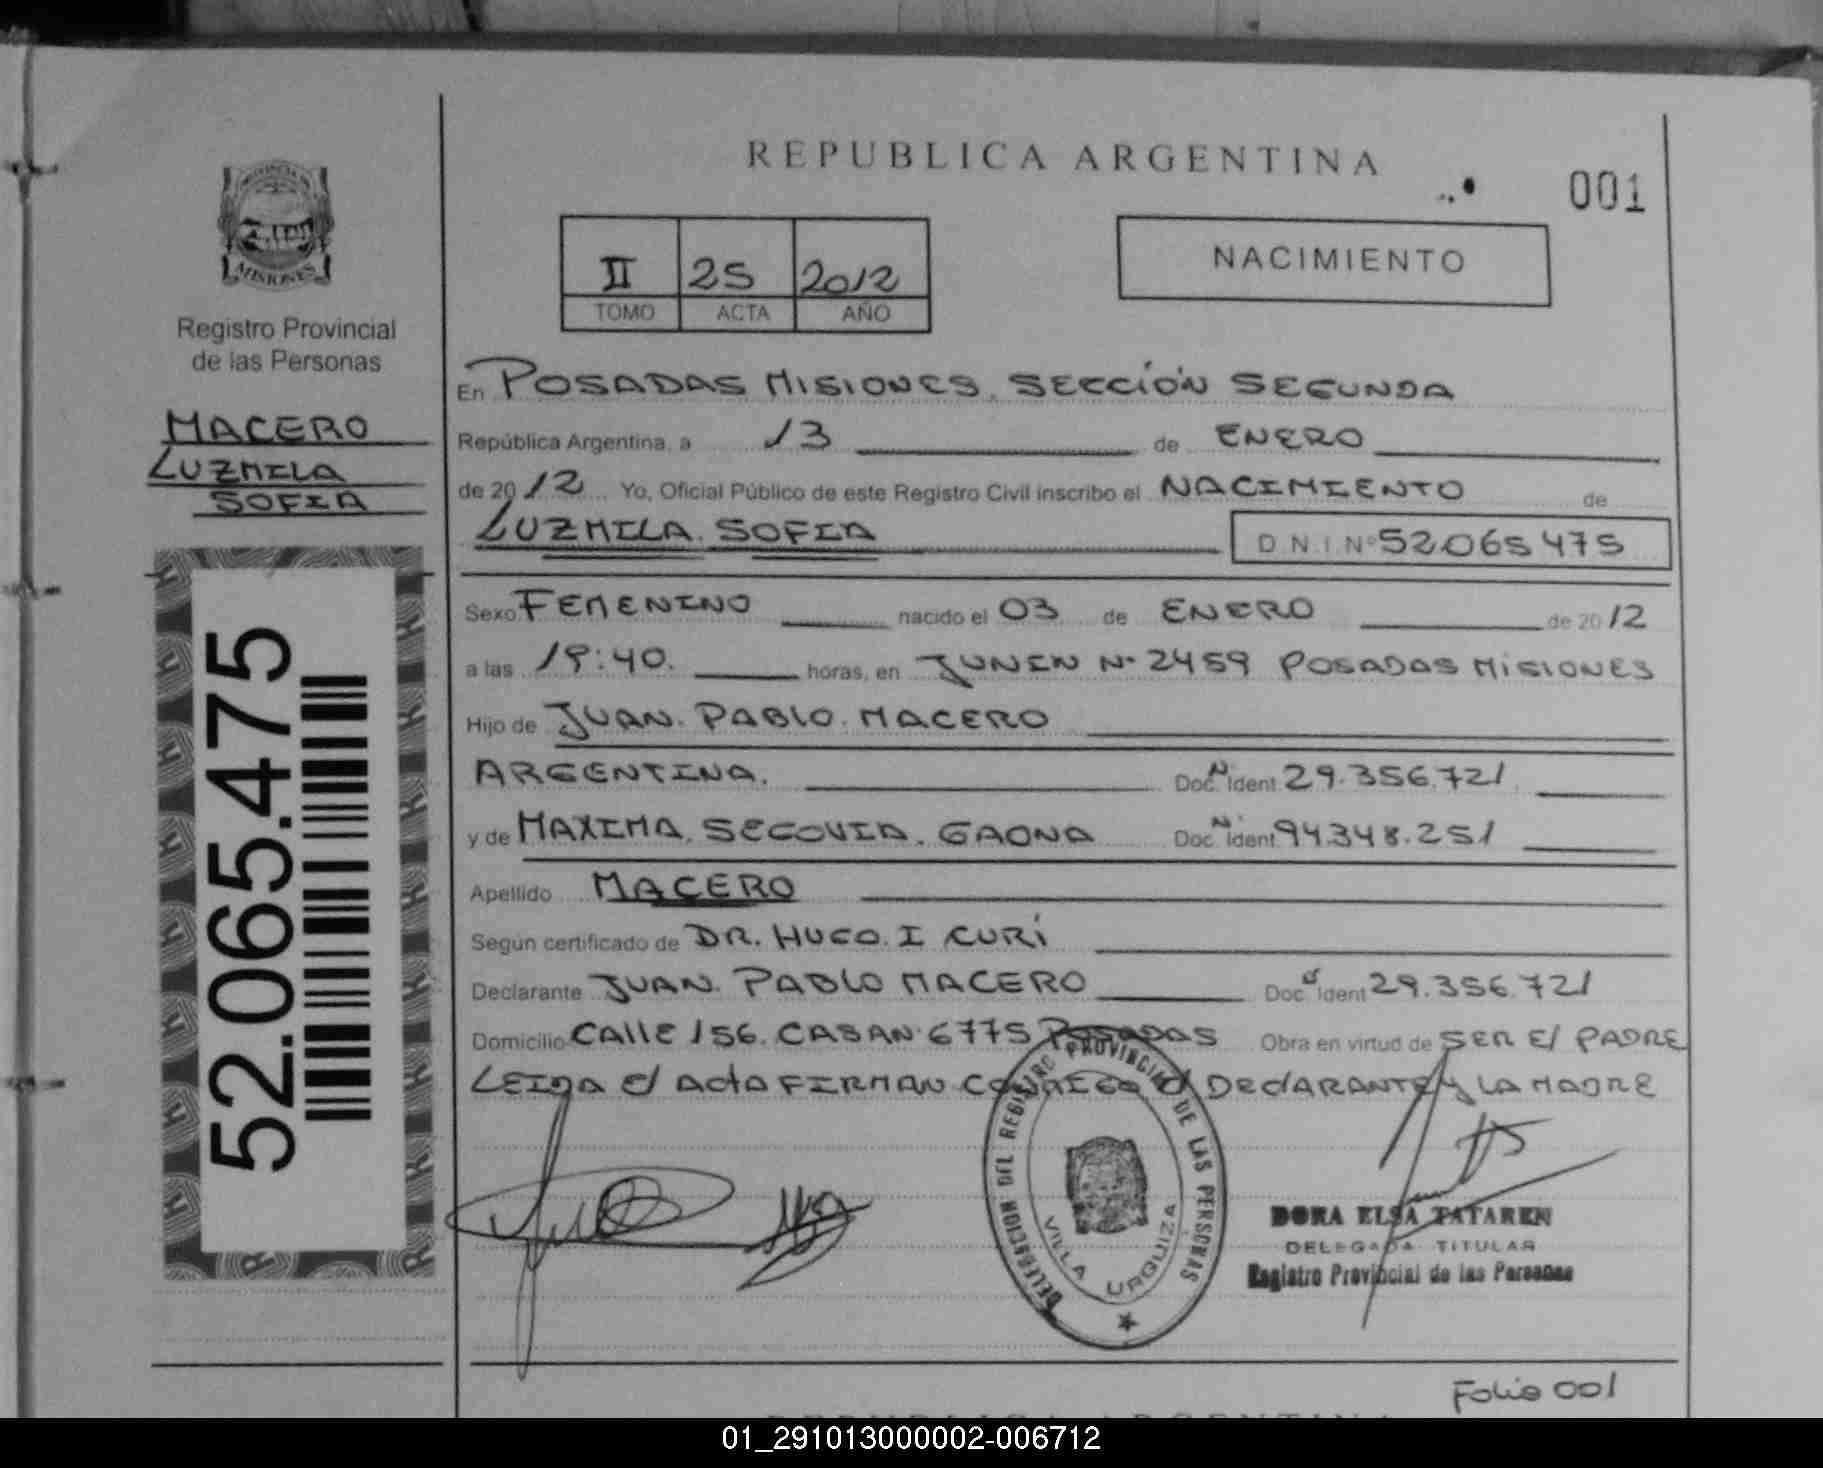 REPUBLICA ARGENTINA
001
PROVINCIA DE
MISIONES
Registro Provincial
de las Personas
MACERO
LUZMILA
SOFIA
52.065.475
II 25 2012
TOMO ACTA AÑO
NACIMIENTO
En POSADAS MISIONES. SECCIÓN SEGUNDA
República Argentina, a 13 de ENERO
de 2012 Yo, Oficial Público de este Registro Civil inscribo el NACIMIENTO de
LUZMILA. SOFIA D.N.I. Nº 52.065475
Sexo FEMENINO nacido el 03 de ENERO de 2012
a las 19:40. horas, en JUNIN Nº 2459 POSADAS MISIONES
Hijo de JUAN. PABLO. MACERO
ARGENTINA. Doc. N. Ident 29.356.721
y de MAXIMA. SEGOVIA. GAONA Doc. N. Ident 94.348.251
Apellido MACERO
Según certificado de DR. HUGO. I CURI
Declarante JUAN. PABLO MACERO Doc. N Ident 29.356.721
Domicilio CALLE 156. CASA N° 6775 POSADAS Obra en virtud de SER El PADRE
LEIDA el ActA FIRMAN CONMIGO el DEClARANTE y LA MADRE
DELEGACION DEL REGISTRO PROVINCIAL DE LAS PERSONAS
VILLA URQUIZA
DORA ELSA TATAREN
DELEGADA TITULAR
Registro Provincial de las Personas
Folio 001
REPUBLICA ARGENTINA
01_291013000002-006712